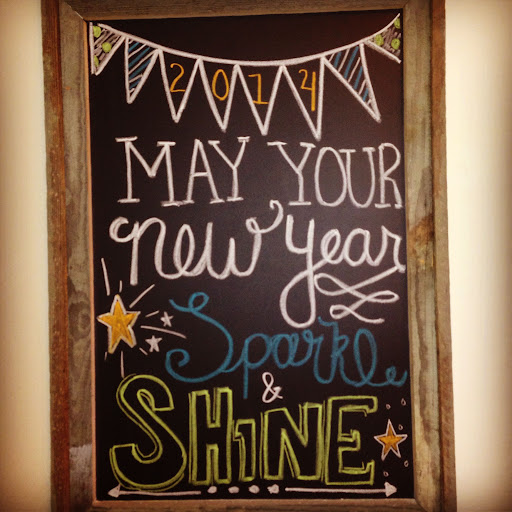 2014
MAY YOUR
new year
Sparkle
&
SHINE